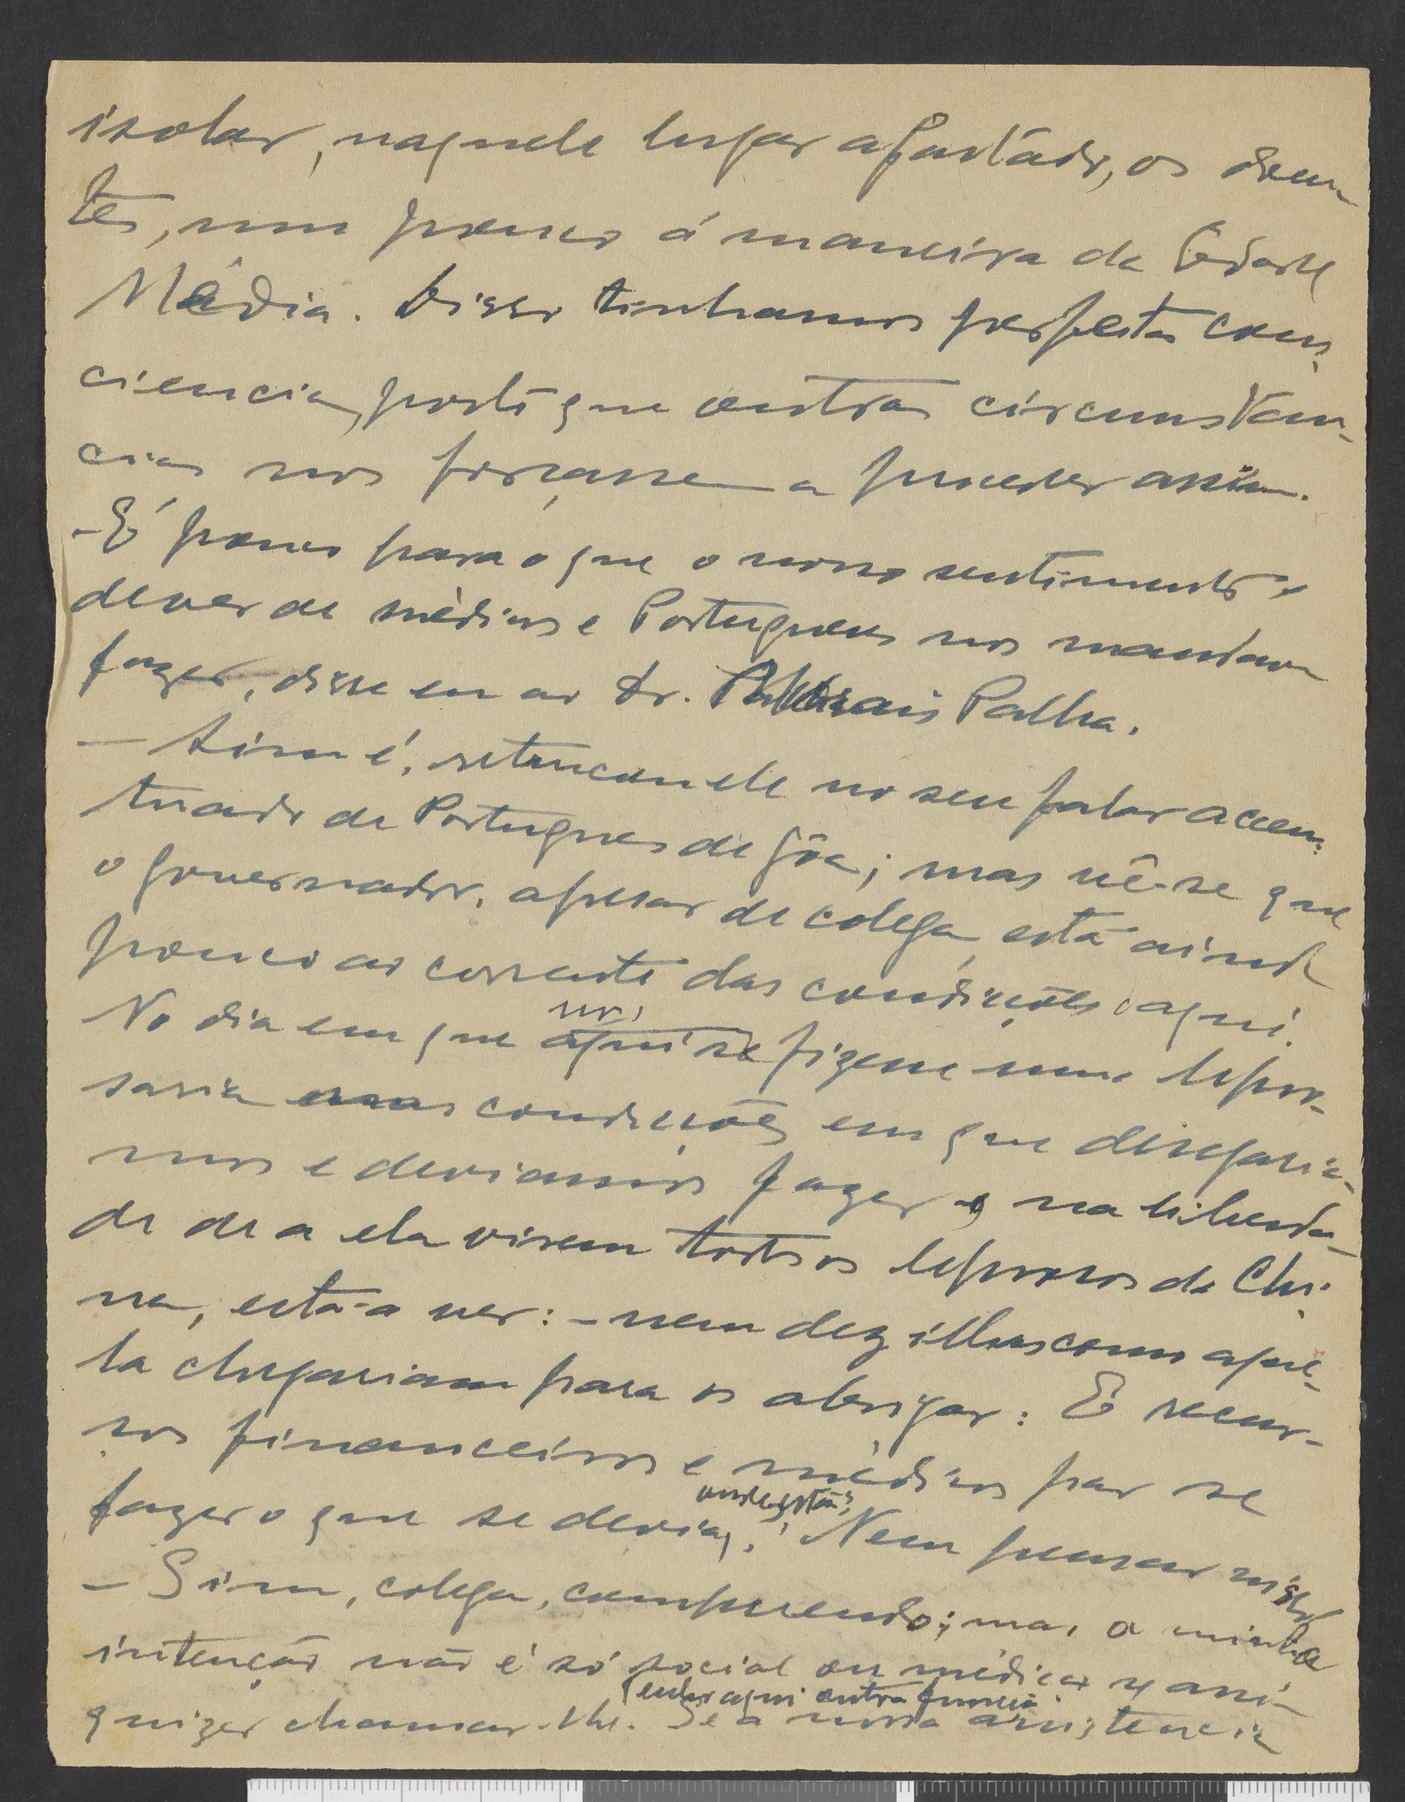 isolar, naquele lugar afastado, os doen-
tes, um pouco á maneira da Edade
Média. Disso tinhamos perfeita cons-
ciencia, posto que outras circunstan-
cias nos forçassem a proceder assim.
- É pouco para o que o nosso sentimento e
dever de médicos e Portugueses nos mandava
fazer, disse eu ao Dr. Morais Palha.
- Sim é, retrucou ele no seu falar acen-
tuado de Portugues de Gôa; mas vê-se que
o governador, apesar de colega, está ainda
pouco ao corrente das condições aqui.
nós
No dia em que aqui se fizesse uma lepro-
saria nas condições em que desejaria-
mos e deviamos fazer e na liberda-
de de a ela virem todos os leprosos da Chi-
na, está-a ver: - nem dez ilhas como aque-
la chegariam para os abrigar: E recur-
sos financeiros e médicos para se
onde estão?
fazer o que se devia,! Nem pensar nisso
- Sim, colega, comprendo; mas a minha
intenção não é só social ou médica se assi-
tenho aqui outra função
quizer chamar-lhe. Se a nossa assistencia